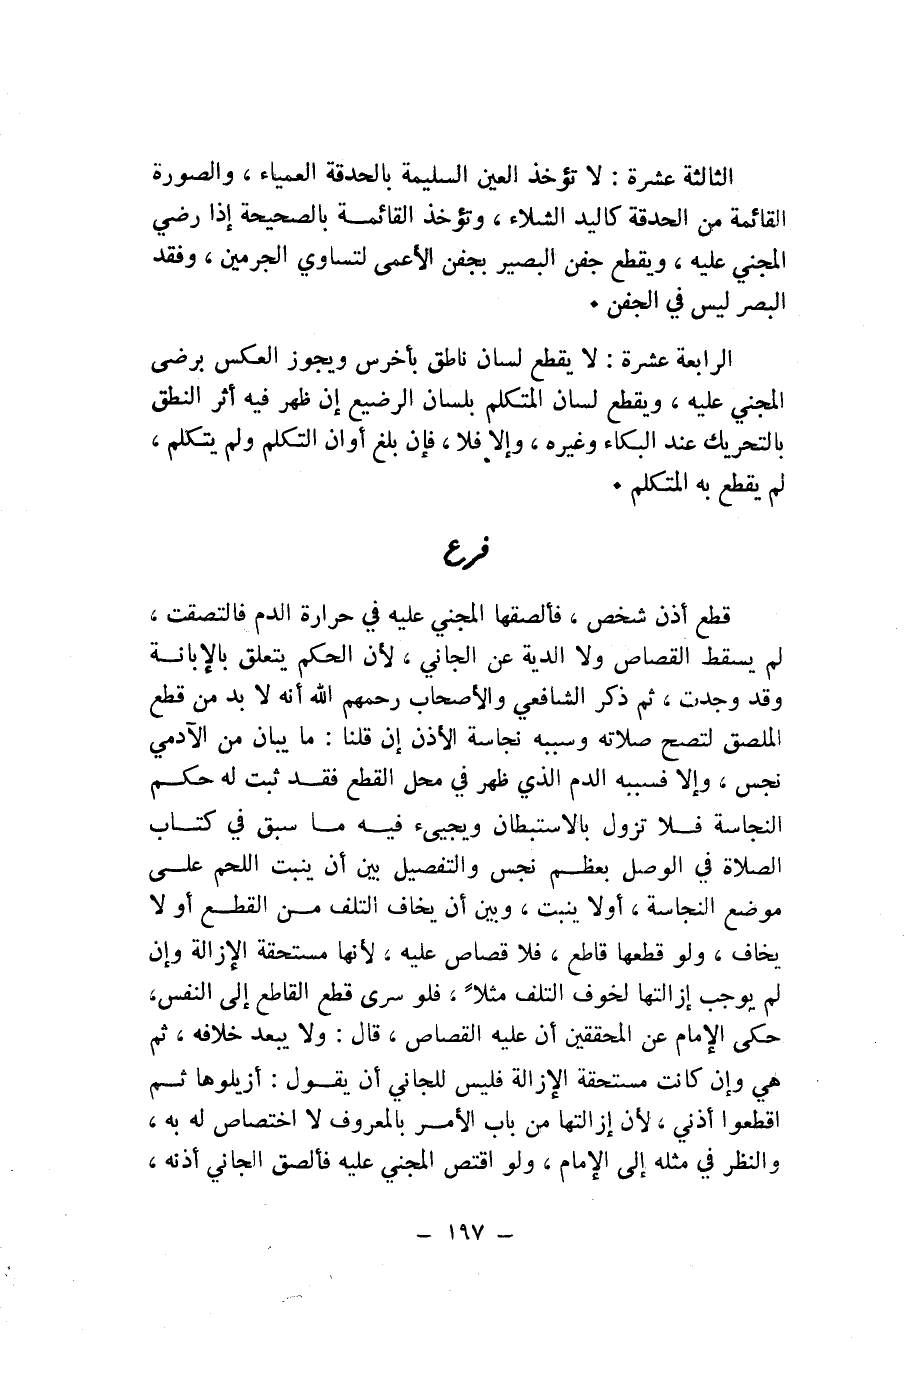 الثالثة عشرة : لا تؤخذ العين السليمة بالحدقة العمياء ، والصورة
القائمة من الحدقة كاليد الشلاء ، وتؤخذ القائمة بالصحيحة إذا رضي
المجني عليه ، ويقطع جفن البصير بجفن الأعمى لتساوي الجرمين ، وفقد
البصر ليس في الجفن .
الرابعة عشرة : لا يقطع لسان ناطق بأخرس ويجوز العكس برضى
المجني عليه ، ويقطع لسان المتكلم بلسان الرضيع إن ظهر فيه أثر النطق
بالتحريك عند البكاء وغيره ، وإلا فلا ، فإن بلغ أوان التكلم ولم يتكلم ،
لم يقطع به المتكلم .
فرع
قطع أذن شخص ، فألصقها المجني عليه في حرارة الدم فالتصقت ،
لم يسقط القصاص ولا الدية عن الجاني ، لأن الحكم يتعلق بالإبانة
وقد وجدت ، ثم ذكر الشافعي والأصحاب رحمهم الله أنه لا بد من قطع
الملصق لتصح صلاته وسببه نجاسة الأذن إن قلنا : ما يبان من الآدمي
نجس ، وإلا فسببه الدم الذي ظهر في محل القطع فقد ثبت له حكم
النجاسة فلا تزول بالاستبطان ويجيىء فيه ما سبق في كتاب
الصلاة في الوصل بعظم نجس والتفصيل بين أن ينبت اللحم على
موضع النجاسة ، أولا ينبت ، وبين أن يخاف التلف من القطع أو لا
يخاف ، ولو قطعها قاطع ، فلا قصاص عليه ، لأنها مستحقة الإزالة وإن
لم يوجب إزالتها لخوف التلف مثلاً ، فلو سرى قطع القاطع إلى النفس،
حكى الإمام عن المحققين أن عليه القصاص ، قال : ولا يبعد خلافه ، ثم
هي وإن كانت مستحقة الإزالة فليس للجاني أن يقول : أزيلوها ثم
اقطعوا أذني ، لأن إزالتها من باب الأمر بالمعروف لا اختصاص له به ،
والنظر في مثله إلى الإمام ، ولو اقتص المجني عليه فألصق الجاني أذنه ،
– ١٩٧ –